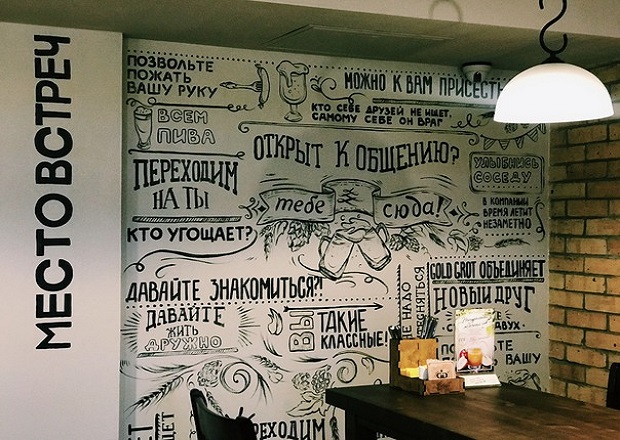 МЕСТО ВСТРЕЧ
ПОЗВОЛЬТЕ
ПОЖАТЬ
ВАШУ РУКУ
МОЖНО К ВАМ ПРИСЕСТЬ
КТО СЕБЕ ДРУЗЕЙ НЕ ИЩЕТ,
САМОМУ СЕБЕ ОН ВРАГ
ВСЕМ
ПИВА
ОТКРЫТ К ОБЩЕНИЮ?
УЛЫБНИСЬ
СОСЕДУ
ПЕРЕХОДИМ
НА ТЫ
тебе сюда!
В КОМПАНИИ
ВРЕМЯ ЛЕТИТ
НЕЗАМЕТНО
КТО УГОЩАЕТ?
GOLD GROT ОБЪЕДИНЯЕТ
ДАВАЙТЕ ЗНАКОМИТЬСЯ?!
НЕ НАДО
НОВЫЙ ДРУГ
ДВУХ
ДАВАЙТЕ
ЖИТЬ
ДРУЖНО
ВЫ ТАКИЕ
КЛАССНЫЕ!
ВАШУ
ПЕРЕХОДИМ